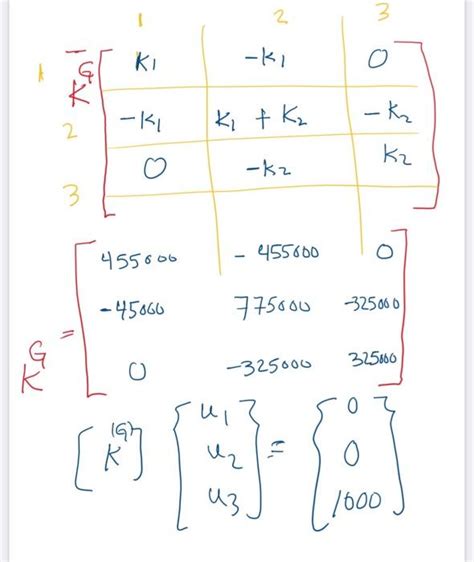 1 2 3
1 K̄ᴳ k1 -k1 0
2 -k1 k1 + k2 -k2
3 0 -k2 k2
455000 - 455000 0
-45000 775000 -325000
Kᴳ =
0 -325000 325000
[K⁽ᴳ⁾] {u1 u2 u3} = {0 0 1000}